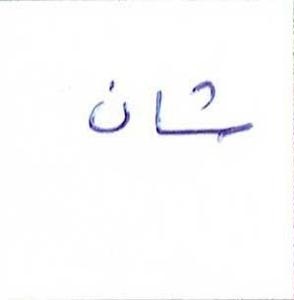 شان